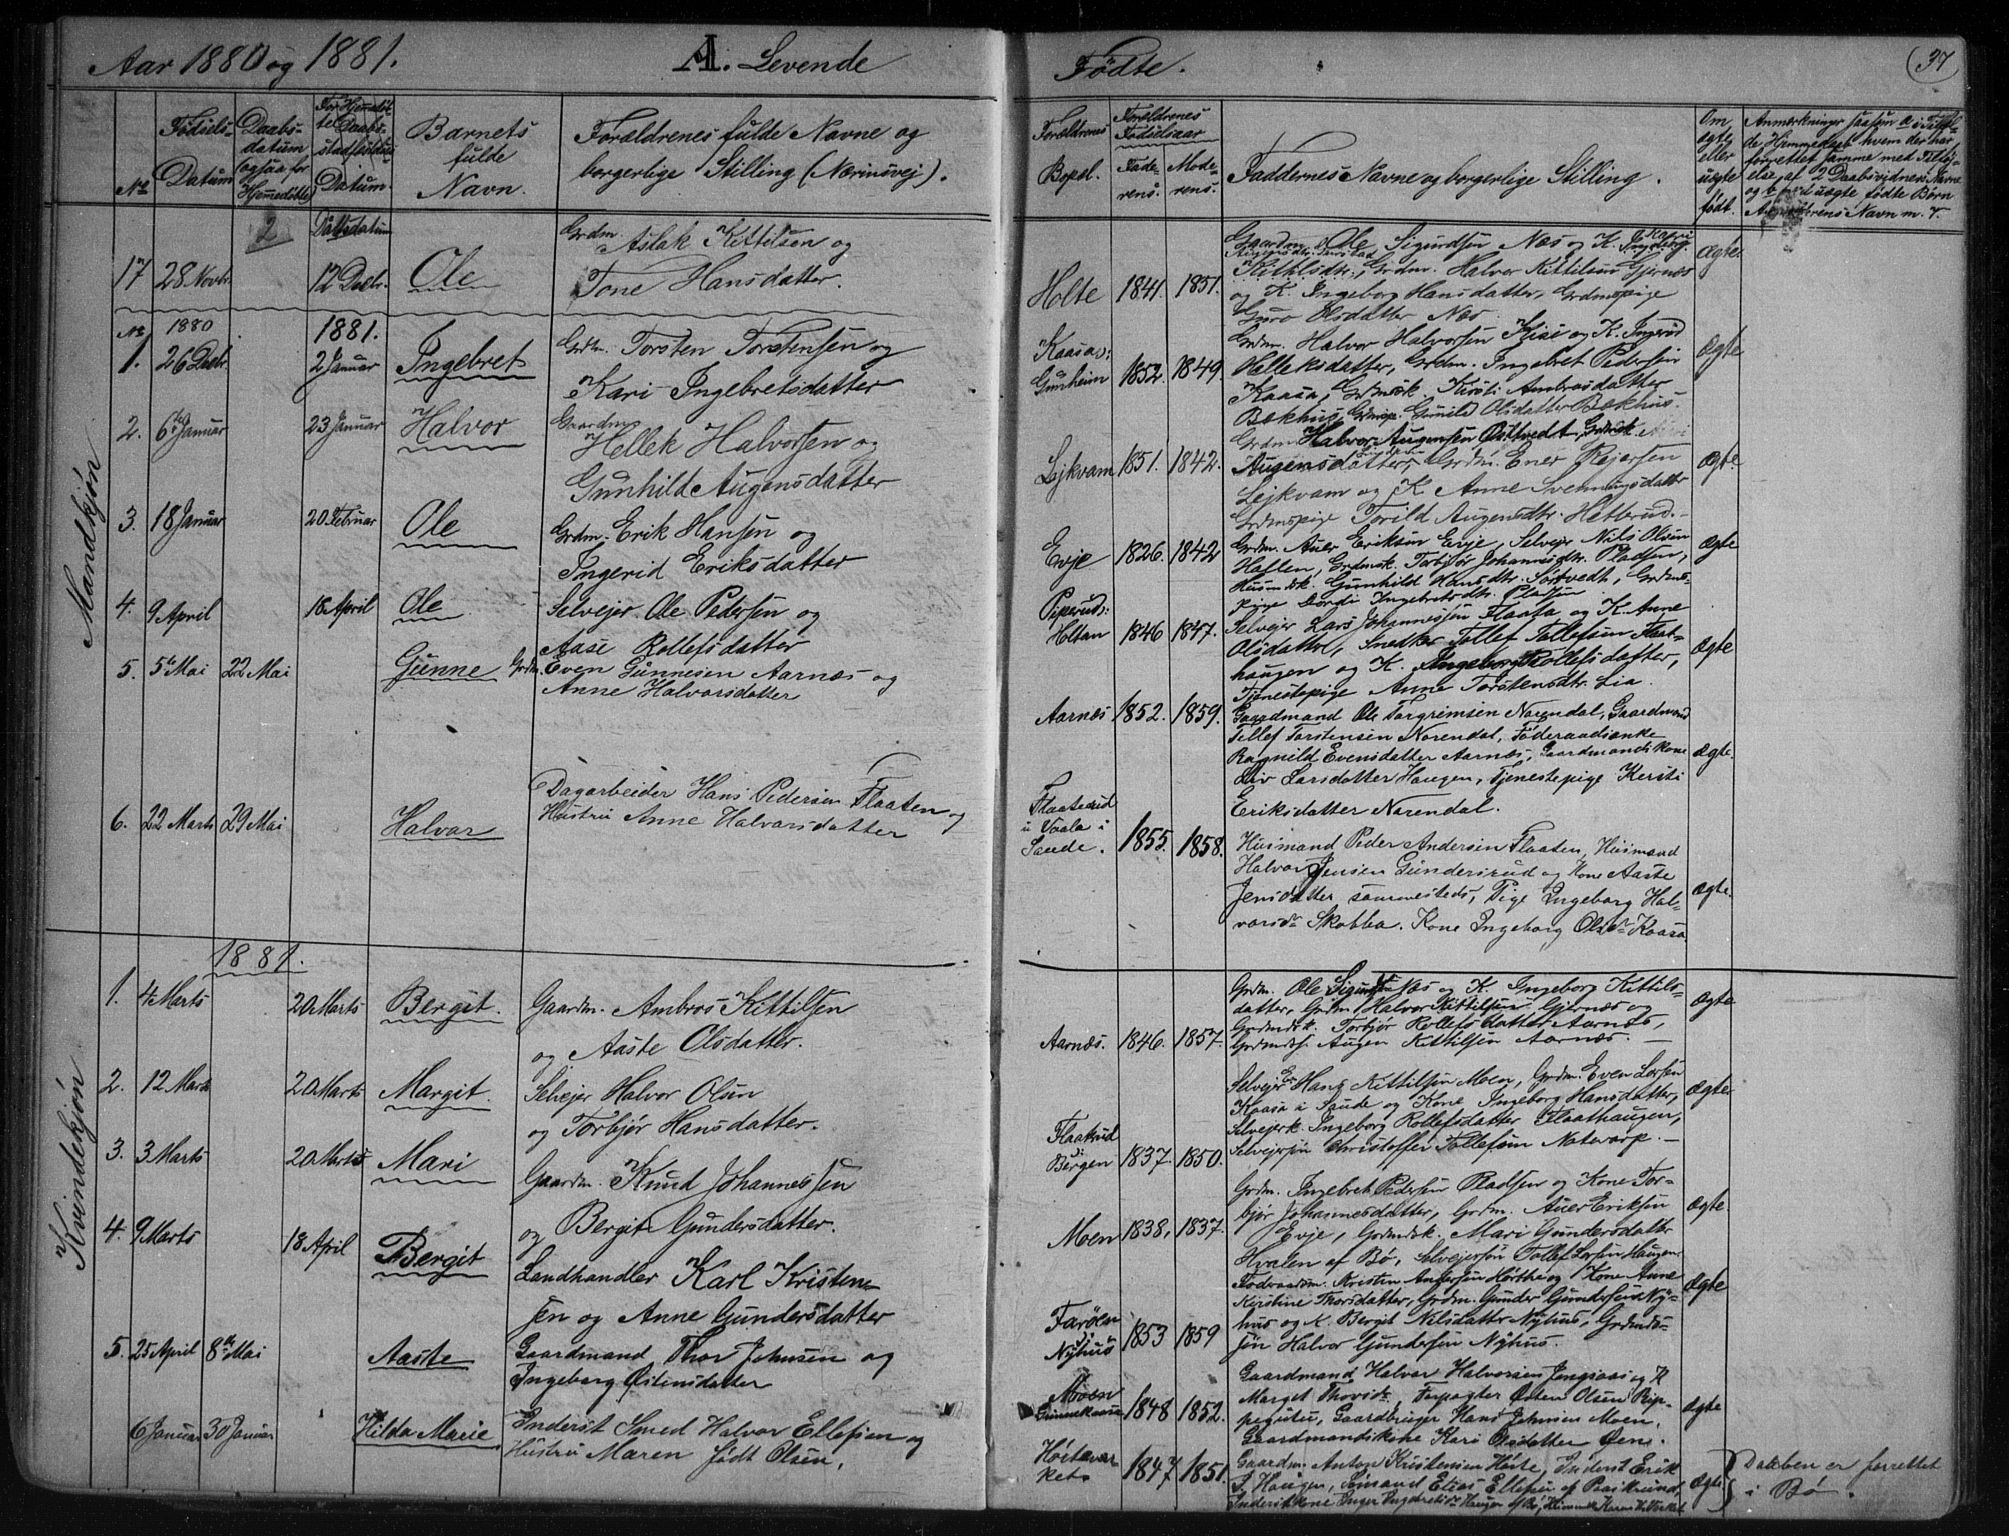 Aar 1880 og 1881.
A. Levende
Fødte.
37
No
Fødsels-
Datum
Daabs-
datum
(ogsaa for
Hjemmedøbte)
For Hjemmedøb-
te Daabs-
stadfæstelses
Datum.
Barnets
fulde
Navn.
Forældrenes fulde Navne og
borgerlige Stilling (Næringsvej).
Forældrenes
Bopæl.
Forældrenes
Fødselsaar
Fade-
rens.
Mode-
rens.
Faddernes Navne og borgerlige Stilling.
Om
ægte
eller
uægte
født.
Mandkjøn
17 28 Novbr. 12 Decbr. Ole
Grdm. Aslak Kittilsen og
Tone Hansdatter.
Holte 1841. 1851.
Gaardm. Ole Sigurdsen Næs og K. Ingeborg
Kittilsdtr., Grdm. Halvor Kittilsen Gjernæs
og K. Ingeborg Hansdatter, Grdmspige
Guro Olsdatter Næs.
Ægte
No 1880 1881.
1. 26 Decbr. 2 Januar Ingebret
Grdm. Torsten Torstensen og
Kari Ingebretsdatter
Kaasa i
Gunheim 1852. 1849.
Grdm. Halvor Halvorsen Kise og K. Ingerid
Helleksdatter, Grdm. Ingebret Pedersen
Kaasa, Grdmsk. Kirsti Ambrosdatter
Bakhus, Grdmsp. Gunild Olsdatter Bakhus.
Ægte
2. 6te Januar 23 Januar Halvor
Gaardm.
Hellek Halvorsen og
Gunhild Augensdatter
Lejkvam 1851. 1842.
Grdm. Halvor Augensen Østtvedt, Grdmsk.
Augensdatter, Grdm. Ener Rejersen
Lejkvam og K. Anne Svenningsdatter
Grdmspige Torild Augensdtr. Hetterud.
Ægte
3. 18 Januar 20 Februar Ole
Grdm. Erik Hansen og
Ingerid Eriksdatter
Evje 1826. 1842
Grdm. Auer Eriksen Evje, Selvejer Nils Olsen
Haften, Grdmsk. Torbjør Johannesdtr. Pladsen,
Husmdsk. Gunhild Hansdtr. Sortvedt, Grdms-
pige Dordi Ingebretsdtr. Pladsen
Ægte
4. 9 April 18 April Ole
Selvejer Ole Pedersen og
Aase Rollefsdatter
Piperud i
Holtan 1846 1847.
Selvejer Lars Johannessen Flaata og K. Anne
Olsdatter, Snedker Tollef Tollefsen Flaat-
haugen og K. Ingeborg Rollefsdatter,
Tjenestepige Anne Torstensdtr. Lia.
Ægte
5. 5te Mai 22 Mai Gunne
Grdm. Even Gunnesen Aarnæs og
Anne Halvorsdatter
Aarnæs 1852. 1859.
Gaardmand Ole Torgrimsen Norendal, Gaardmand
Tellef Torstensen Norendal, Føderaadsenke
Ragnild Evensdatter Aarnæs, Gaardmandskone
Liv Larsdatter Haugen, Tjenestepige Kersti
Eriksdatter Norendal.
Ægte
6. 22 Marts 29 Mai Halvor
Dagarbeider Hans Pedersen Flaaten og
Hustru Anne Halvorsdatter
Flaaterud
i Vaala i
Saude. 1855. 1858.
Husmand Peder Andersen Flaaten, Husmand
Halvor Jensen Gundersrud og Kone Aaste
Jensdatter sammesteds, Pige Ingeborg Hal-
vorsdr. Skobba. Kone Ingeborg Olsdr. Kaasa
Ægte
1881.
Kvindekjøn
1. 4 Marts 20 Marts Bergit.
Gaardm. Ambros Kittilsen
og Aaste Olsdatter.
Aarnæs. 1846. 1857.
Grdm. Ole Sigurdsen Næs og K. Ingeborg Kittils-
datter, Grdm. Halvor Kittilsen Gjernæs og
Grdmdsk. Torbjør Rollefsdatter Aarnæs,
Grdmds. Augen Kittilsen Aarnæs.
Ægte
2. 12 Marts 20 Marts Margit.
Selvejer Halvor Olsen
og Torbjør Hansdatter.
Flaatrud
i
Bergen 1837. 1850.
Selvejer Hans Kittilsen Moen, Grdm. Even Larsen
Kaasa i Saude og Kone Ingeborg Hansdatter,
Selvejerk. Ingeborg Rollefsdatter Flaathaugen,
Selvejersøn Christoffer Tollefsen Natvarp.
Ægte
3. 3 Marts 20 Marts Mari
Gaardm. Knud Johannessen
og Bergit Gundersdatter.
Moen 1838, 1837.
Grdm. Ingebret Pedersen Pladsen og Kone Tor-
bjør Johannesdatter, Grdm. Auer Eriksen
Evje, Grdmdsk. Mari Gundersdatter
Hvalen af Bø, Selvejersøn Tollef Larsen Haugen.
Ægte
4. 9 Marts 18 April Bergit
Landhandler Karl Kristen-
sen og Anne Gundersdatter
Farøen
i
Nyhus 1853 1859
Føderaadsm. Kristen Andersen Hørthe og Kone Anne
Kirstine Thorsdatter, Grdm. Gunder Gundersen Ny-
hus og K. Bergit Nilsdatter Nyhus, Grdmds-
søn Halvor Gundersen Nyhus.
Ægte
5. 25 April 8de Mai Aaste
Gaardmand Thor Johnsen og
Ingeborg Østensdatter
Moen
1848 1852.
Gaardmand Halvor Halvorsen og K.
Marget Thovsdr. Forpagter Østen Olsen Rip-
pegutu, Gaardbruger Hans Johnsen Moen.
Gaardmandskone Kari Olsdatter Øen.
Ægte
6 Januar 30 Januar Hilda Marie
Inderst Smed Halvor Ellefsen og
Hustru Maren født Olsen.
Høitevar-
kets 1847 1851.
Gaardm. Anton Kristensen Hørte, Inderst Erik
J. Haugen, Sømand Elias Ellefsen af Porsgrund,
Inderstkone Inger Ingebretsdr. Haugen
Ægte
Daaben er forrettet
i Bø.